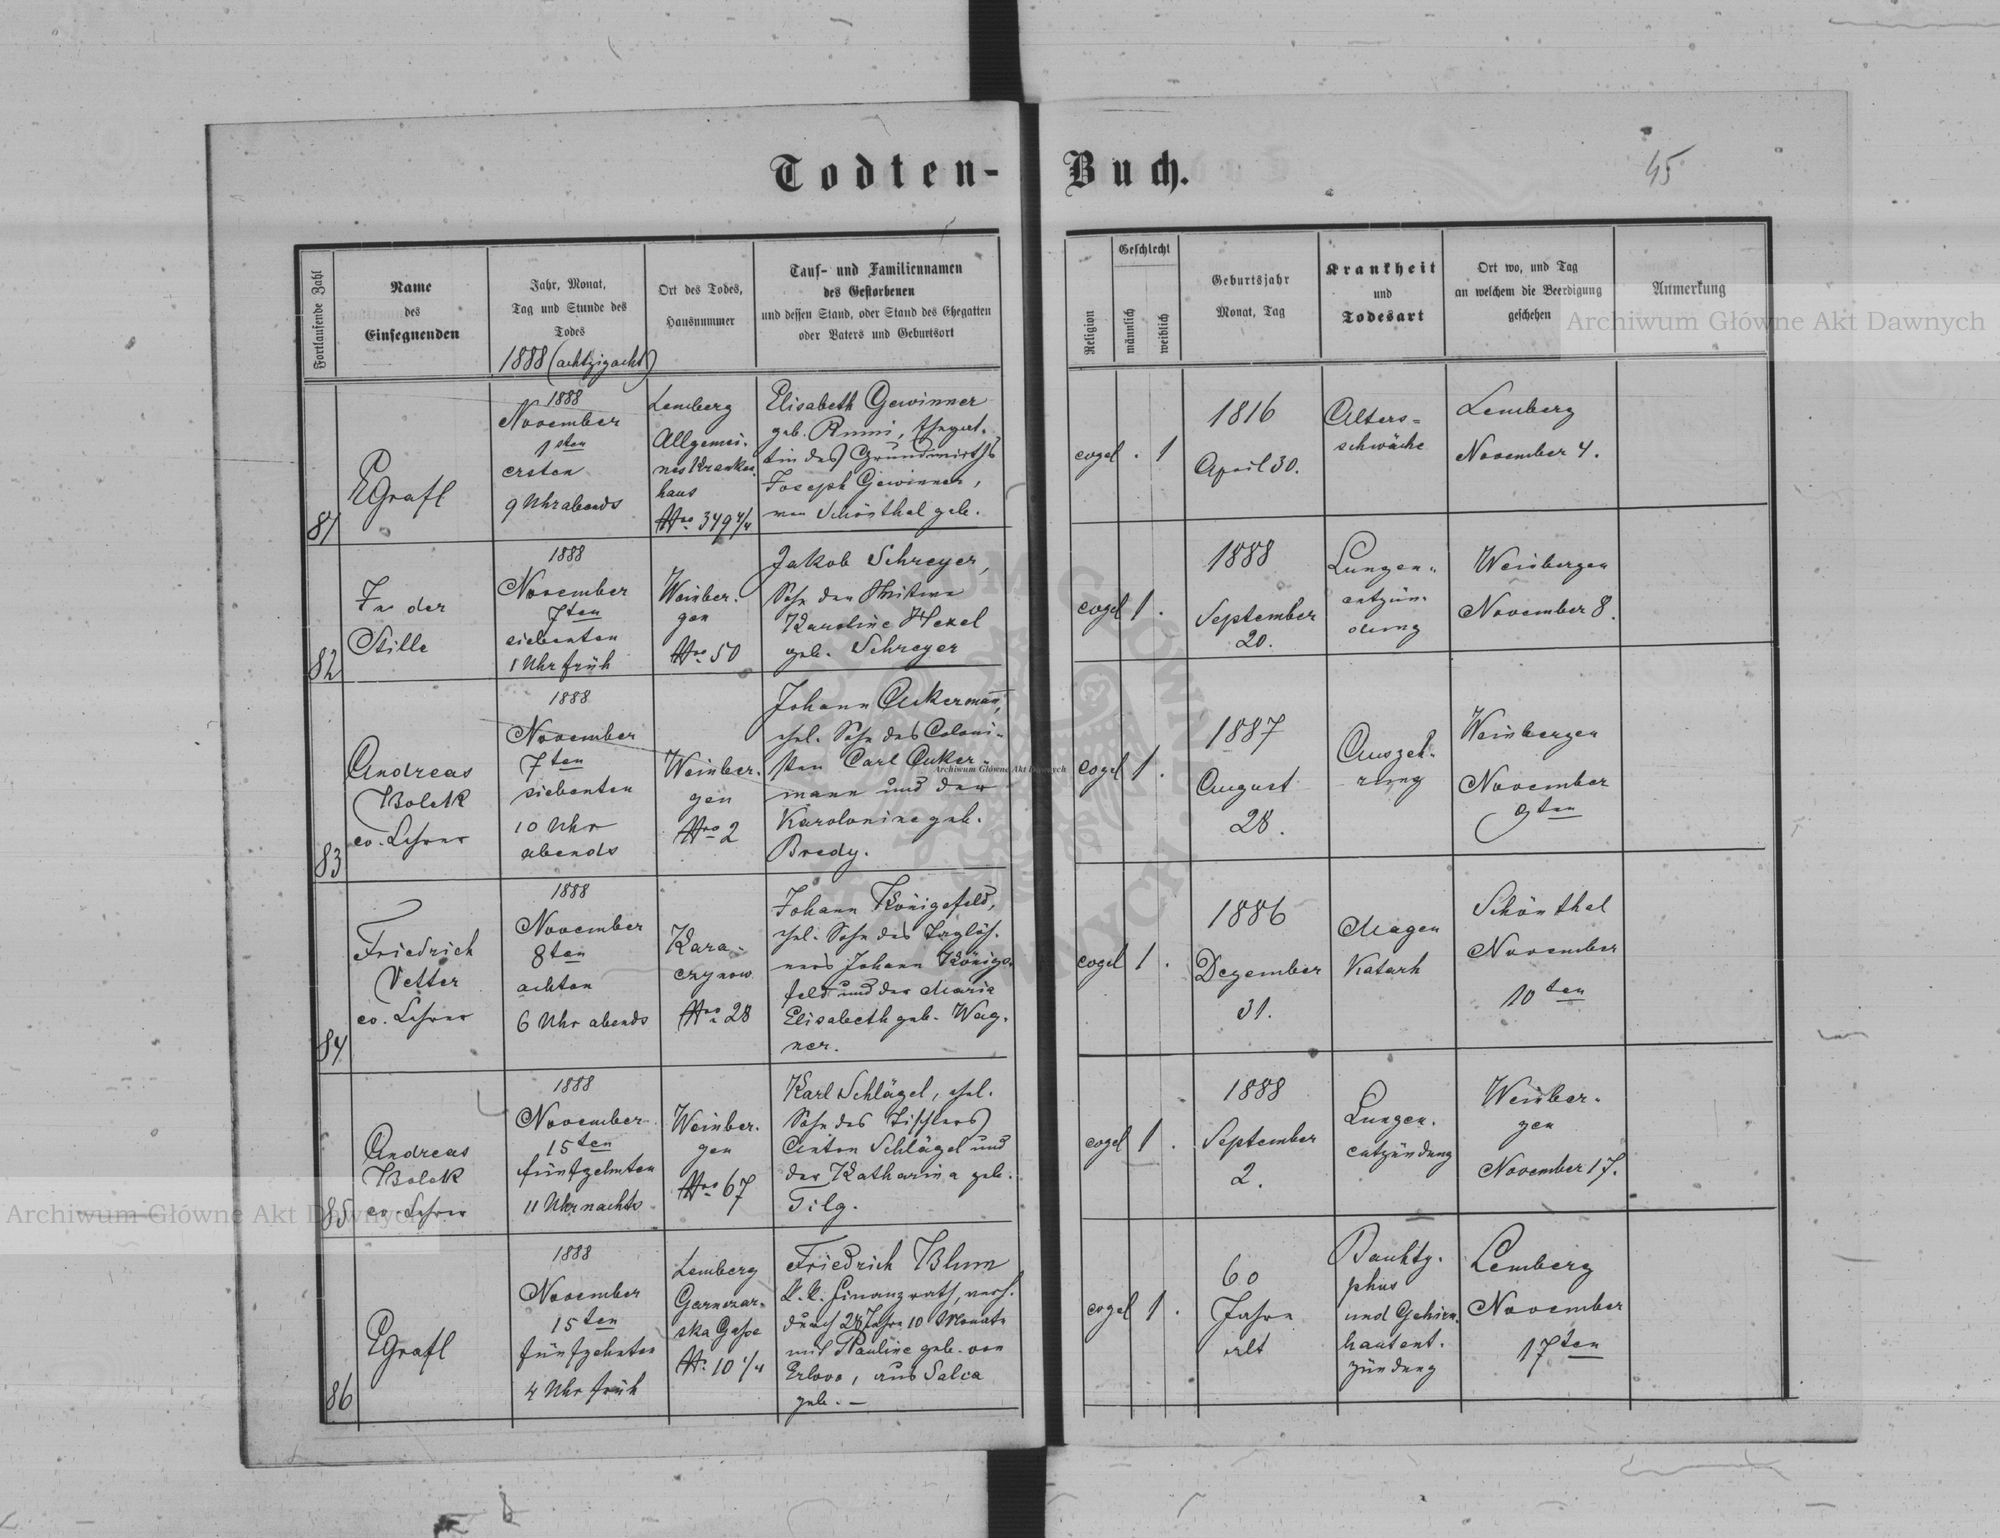 Todten-Buch.
45
Fortlaufende Zahl
Name
des
Einsegnenden
Jahr, Monat,
Tag und Stunde des
Todes
1888 (achtzigacht)
Ort des Todes,
Hausnummer
Tauf- und Familiennamen
des Gestorbenen
und dessen Stand, oder Stand des Ehegatten
oder Vaters und Geburtsort
Religion
Geschlecht
männlich
weiblich
Geburtsjahr
Monat, Tag
Krankheit
und
Todesart
Ort wo, und Tag
an welchem die Beerdigung
geschehen
Anmerkung
Archiwum Główne Akt Dawnych
81
EGrafl
1888
November
1sten
ersten
9 Uhr abends
Lemberg
Allgemei-
nes Kranken
haus
Nro 349 4/4
Elisabeth Gewinner
geb. Rumi, Ehegat-
tin des Grundwirths
Joseph Gewinner,
von Schönthal geb.
evgel
. 1
1816
April 30.
Alters-
schwäche
Lemberg
November 4.
82
In der
Stille
1888
November
7ten
siebenten
1 Uhr früh
Weinber-
gen
Nro 50
Jakob Schreyer,
Sohn der Witwe
Karoline Hexel
geb. Schreyer
evgel
1 .
1888
September
20.
Lungen-
entzün-
dung
Weinbergen
November 8.
83
Andreas
Bolek
ev. Lehrer
1888
November
7ten
siebenten
10 Uhr
abends
Weinber-
gen
Nro 2
Johann Ackermann,
ehel. Sohn des Coloni-
sten Carl Acker-
mann und der
Karolonine geb.
Bredy.
Archiwum Główne Akt Dawnych
evgel
1 .
1887
August
28.
Auszeh-
rung
Weinbergen
November
9ten
84
Friedrich
Vetter
ev. Lehrer
1888
November
8ten
achten
6 Uhr abends
Kara-
czynow
Nro 28
Johann Königsfeld,
ehel. Sohn des Taglöh-
ners Johann Königs-
feld und der Maria
Elisabeth geb. Wag-
ner.
evgel
1 .
1886
Dezember
31.
Magen
Katarh
Schönthal
November
10ten
85
Andreas
Bolek
ev. Lehrer
1888
November
15ten
fünfzehnten
11 Uhr nachts
Weinber-
gen
Nro 67
Karl Schlägel, ehel.
Sohn des Tischlers
Anton Schlägel und
der Katharina geb.
Tilg.
evgel
1 .
1888
September
2.
Lungen-
entzündung
Weinber-
gen
November 17.
Archiwum Główne Akt Dawnych
86
EGrafl
1888
November
15ten
fünfzehnten
4 Uhr früh
Lemberg
Garncar-
ska Gasse
N. 10 1/4
Friedrich Blum
k. k. Finanzrath, verh.
durch 28 Jahre 10 Monate
mit Pauline geb. von
aus Salca
geb. —
evgel
1 .
60
Jahre
alt
Bauchty-
phus
und Gehirn-
hautent-
zündung
Lemberg
November
17ten